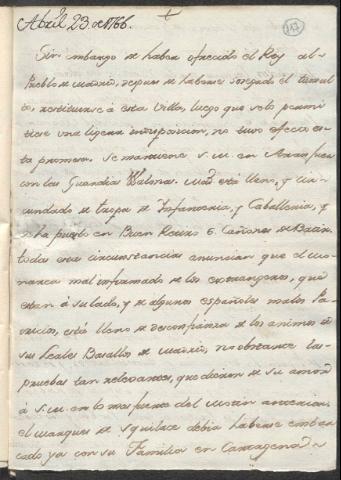 Abril 23 de 1766.
117
Sin embargo de haber ofrecido el Rey al
Pueblo de Madrid, despues de haberse sosegado el tumul
to, restituirse à esta Villa, luego que se lo permi
tiese una ligera indisposicion, no tuvo efecto es
ta promesa. Se mantiene S.M. en Aranjuez
con las Guardias Walonas. Mad. está lleno, y cir
cundado de tropa de Infanteria, y Caballeria, y
se ha puesto en Buen Retiro 6. Cañones de Batir.
todas estas circunstancias anuncian que el Mo
narca mal informado de los extrangeros, que
estan à su lado, y de algunos españoles malos Pa
tricios, está lleno de desconfianza de los animos de
sus Leales Basallos de Madrid, no obstante las
pruebas tan relevantes, que dieron de su amor
à S.M. en lo mas fuerte del Motin anterior.
el Marques de Squilace debia haberse embar
cado ya con su Familia en Cartagena